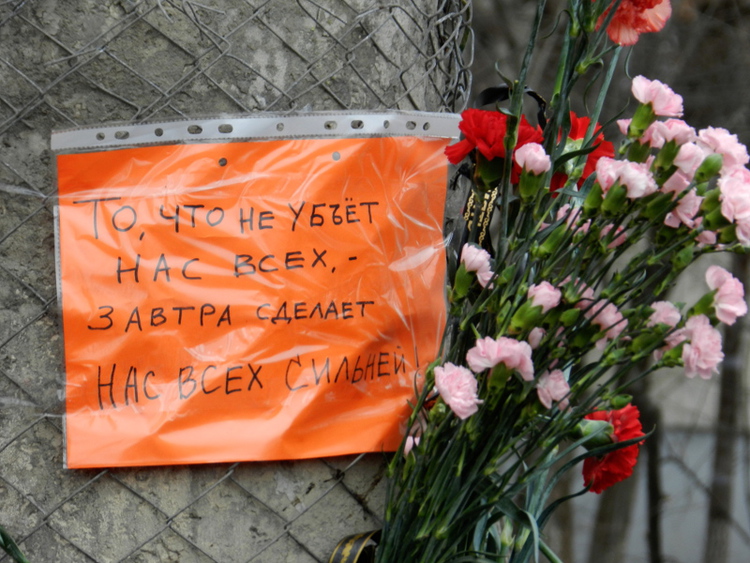 То, что не убъёт
нас всех, -
завтра сделает
нас всех сильней!